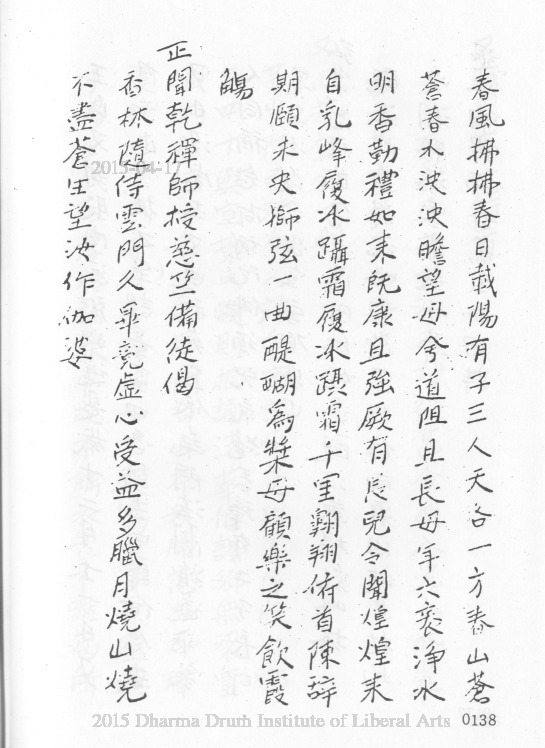 春風拂拂春日載陽有子三人天各一方春山蒼
蒼春水泱泱瞻望母兮道阻且長母年六袠淨水
明香勤禮如来既康且強厥有良兒令聞煌煌来
自乳峰履冰躡霜履冰躡霜千里翺翔俯首陳辞
期頤未央獅弦一曲醍醐為槳母顧樂之笑飲霞
觴
正聞乾禪師授慈竺備徒偈
香林随侍雲門久畢竟虛心受益多臘月燒山燒
不盡蒼生望汝作伽婆
2015-04-17
2015 Dharma Drum Institute of Liberal Arts 0138